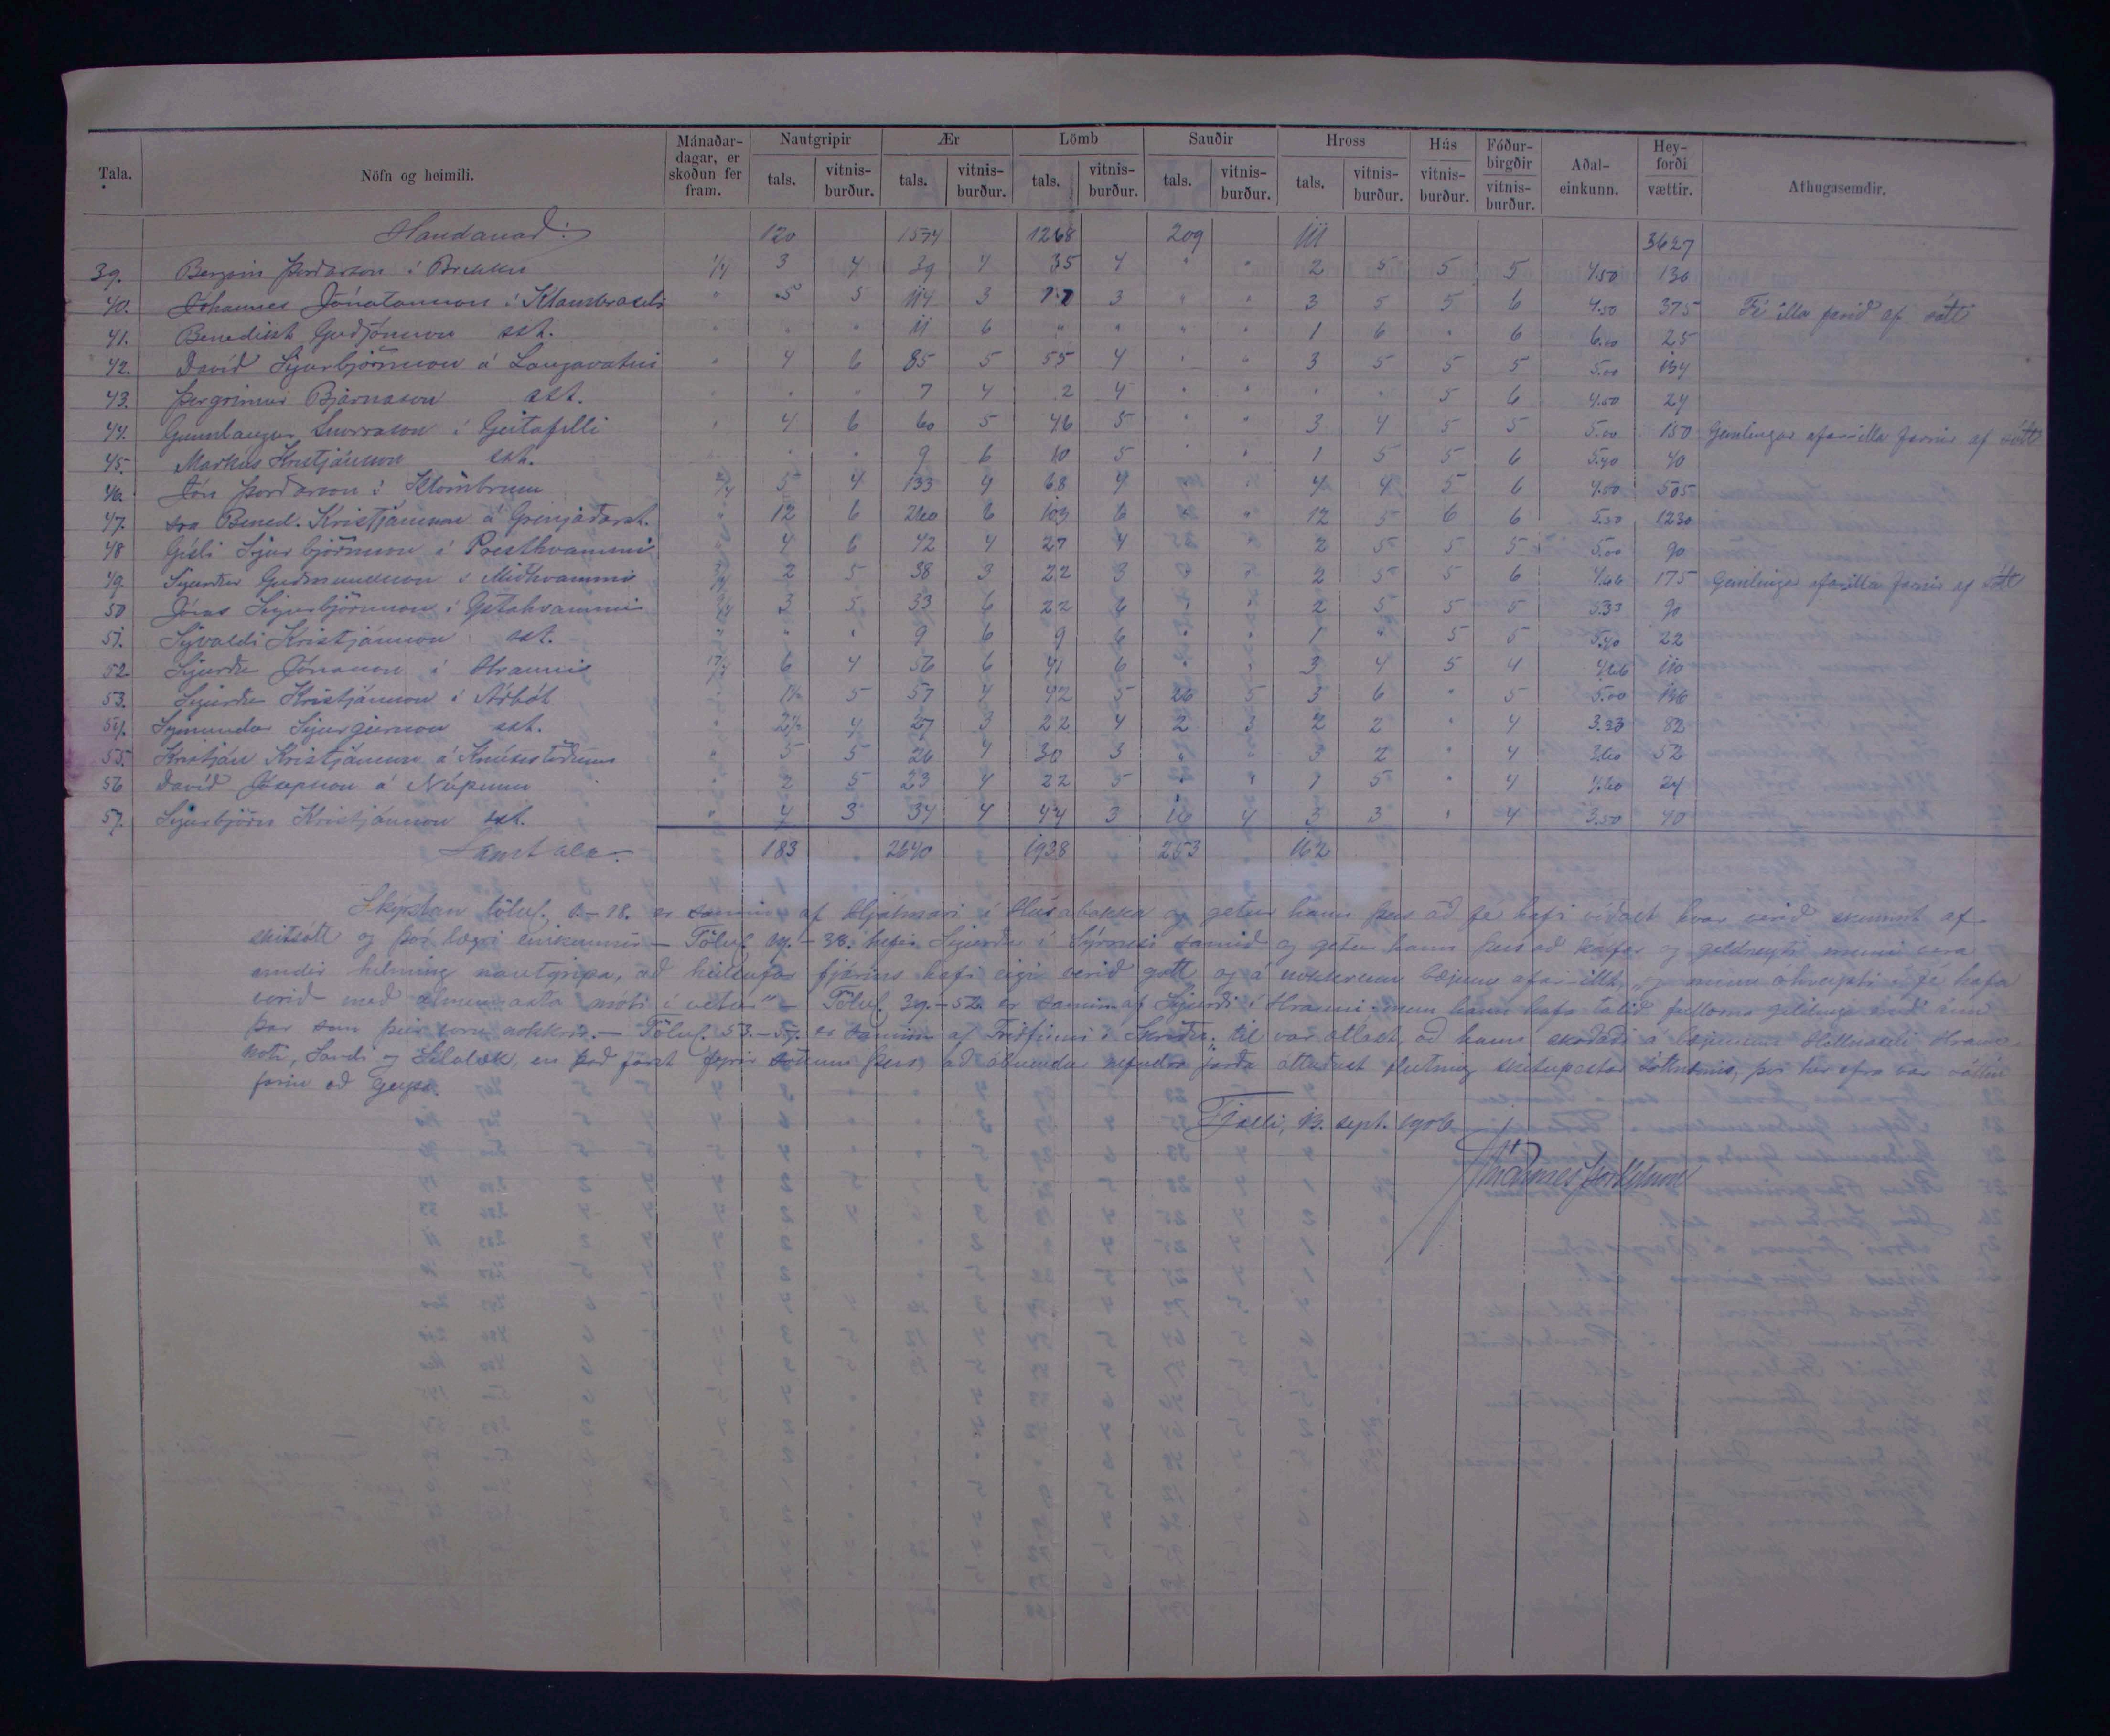 Tala. Nöfn og heimili. Mánaðar-dagar, er skoðun fer fram. Nautgripir tals. vitnis-burður. Ær tals. vitnis-burður. Lömb tals. vitnis-burður. Sauðir tals. vitnis-burður. Hross tals. vitnis-burður. Hús vitnis-burður. Fóður-birgðir vitnis-burður. Aðal-einkunn. Hey-forði vættir. Athugasemdir.
Handanað: 120 1574 1268 209 111 3627
39. Bergvin Þórðarson í Brekku 1/4 3 4 39 4 35 4 " " 2 5 5 5 4.50 130
40. Jóhannes Jónatansson í Klambraseli " 5 5 114 3 77 3 " " 3 5 5 6 4.50 375 Fé illa farið af sótt
41. Benedikt Guðjónsson sst. " " " 11 6 " " " " 1 6 " 6 6.00 25
42. Davíð Sigurbjörnsson á Langavatni " 4 6 85 5 55 4 " " 3 5 5 5 5.00 134
43. Þorgrímur Bjarnason sst. " " " 7 4 2 4 " " " " 5 6 4.50 24
44. Gunnlaugur Snorrason í Geitafelli " 4 6 60 5 46 5 " " 3 4 5 5 5.00 150 Gemlingar afar-illa farnir af sótt
45. Markús Kristjánsson sst. " " 9 6 10 5 " " 1 5 5 6 5.40 40
46. Jón Þórðarson í Klömbrum 2/4 5 4 133 4 68 4 " 4 4 5 6 4.50 505
47. sra Bened. Kristjánsson á Grenjaðarst. " 12 6 260 6 103 6 " " 12 5 6 6 5.50 1230
48 Gísli Sigurbjörnsson í Presthvammi " 4 6 42 4 27 4 2 5 5 5 5.00 90
49. Sigurður Guðmundsson í Miðhvammi 2 5 38 3 22 3 2 5 5 6 4.66 175 Gemlingar afarilla farnir af sótt
50 Jónas Sigurbjörnsson í Ystahvammi 3 5 33 6 22 6 " " 2 5 5 5 5.33 90
51. Sigvaldi Kristjánsson sst. " " " 9 6 9 6 " " 1 " 5 5 5.40 22
52 Sigurður Jónsson í Hrauni 17/4 6 4 56 6 41 6 " " 3 4 5 4 4.66 110
53. Sigurður Kristjánsson í Árbót 1½ 5 57 4 42 5 26 5 3 6 " 5 5.00 146
54. Sigmundur Sigurgeirsson sst. " 2½ 4 27 3 22 4 2 3 2 2 " 4 3.33 82
55. Kristján Kristjánsson á Knútsstöðum " 3 5 26 4 30 3 " " 3 2 " 4 3.60 52
56 Davíð Jósepsson á Núpum " 2 5 23 4 22 5 " " 1 5 " 4 4.60 24
57. Sigurbjörn Kristjánsson sst. " 4 3 34 4 44 3 16 4 3 3 " 4 3.50 40
Samtals: 183 2640 1938 253 162
Skýrslan tölul. 1–18. er samin af Hjálmari í Húsabakka og getur hann þess að fé hafi víðast hvar verið skemmt af
skitsótt og því lægri einkunnir — Tölul. 19.–38. hefir Sigurður í Sýrnesi samið og getur hann þess að kálfar og geldneyti muni vera
undir helming nautgripa, að heilsufar fjárins hafi eigi verið gott og á nokkrum bæjum afar-illt, „og minni óhreysti í fé hafa
verið með almennasta móti í vetur" — Tölul. 39.–52. er samin af Sigurði í Hrauni. mun hann hafa talið fullorna geldinga með ám
þar sem þeir voru nokkrir. — Tölul. 53.–57. er samin af Friðfinni í Skriðu; til var ætlast að hann skoðaði á bæjunum Hólmavaði Hraun-
koti, Sandi og Sílalæk, en það fórst fyrir sökum þess, að ábúendur nefndra jarða óttuðust flutning skitupestar sóttnæmis, því hér efra var sóttin
farin að geysa.
Fjalli, 13. sept. 1906.
Jóhannes Þorkelsson